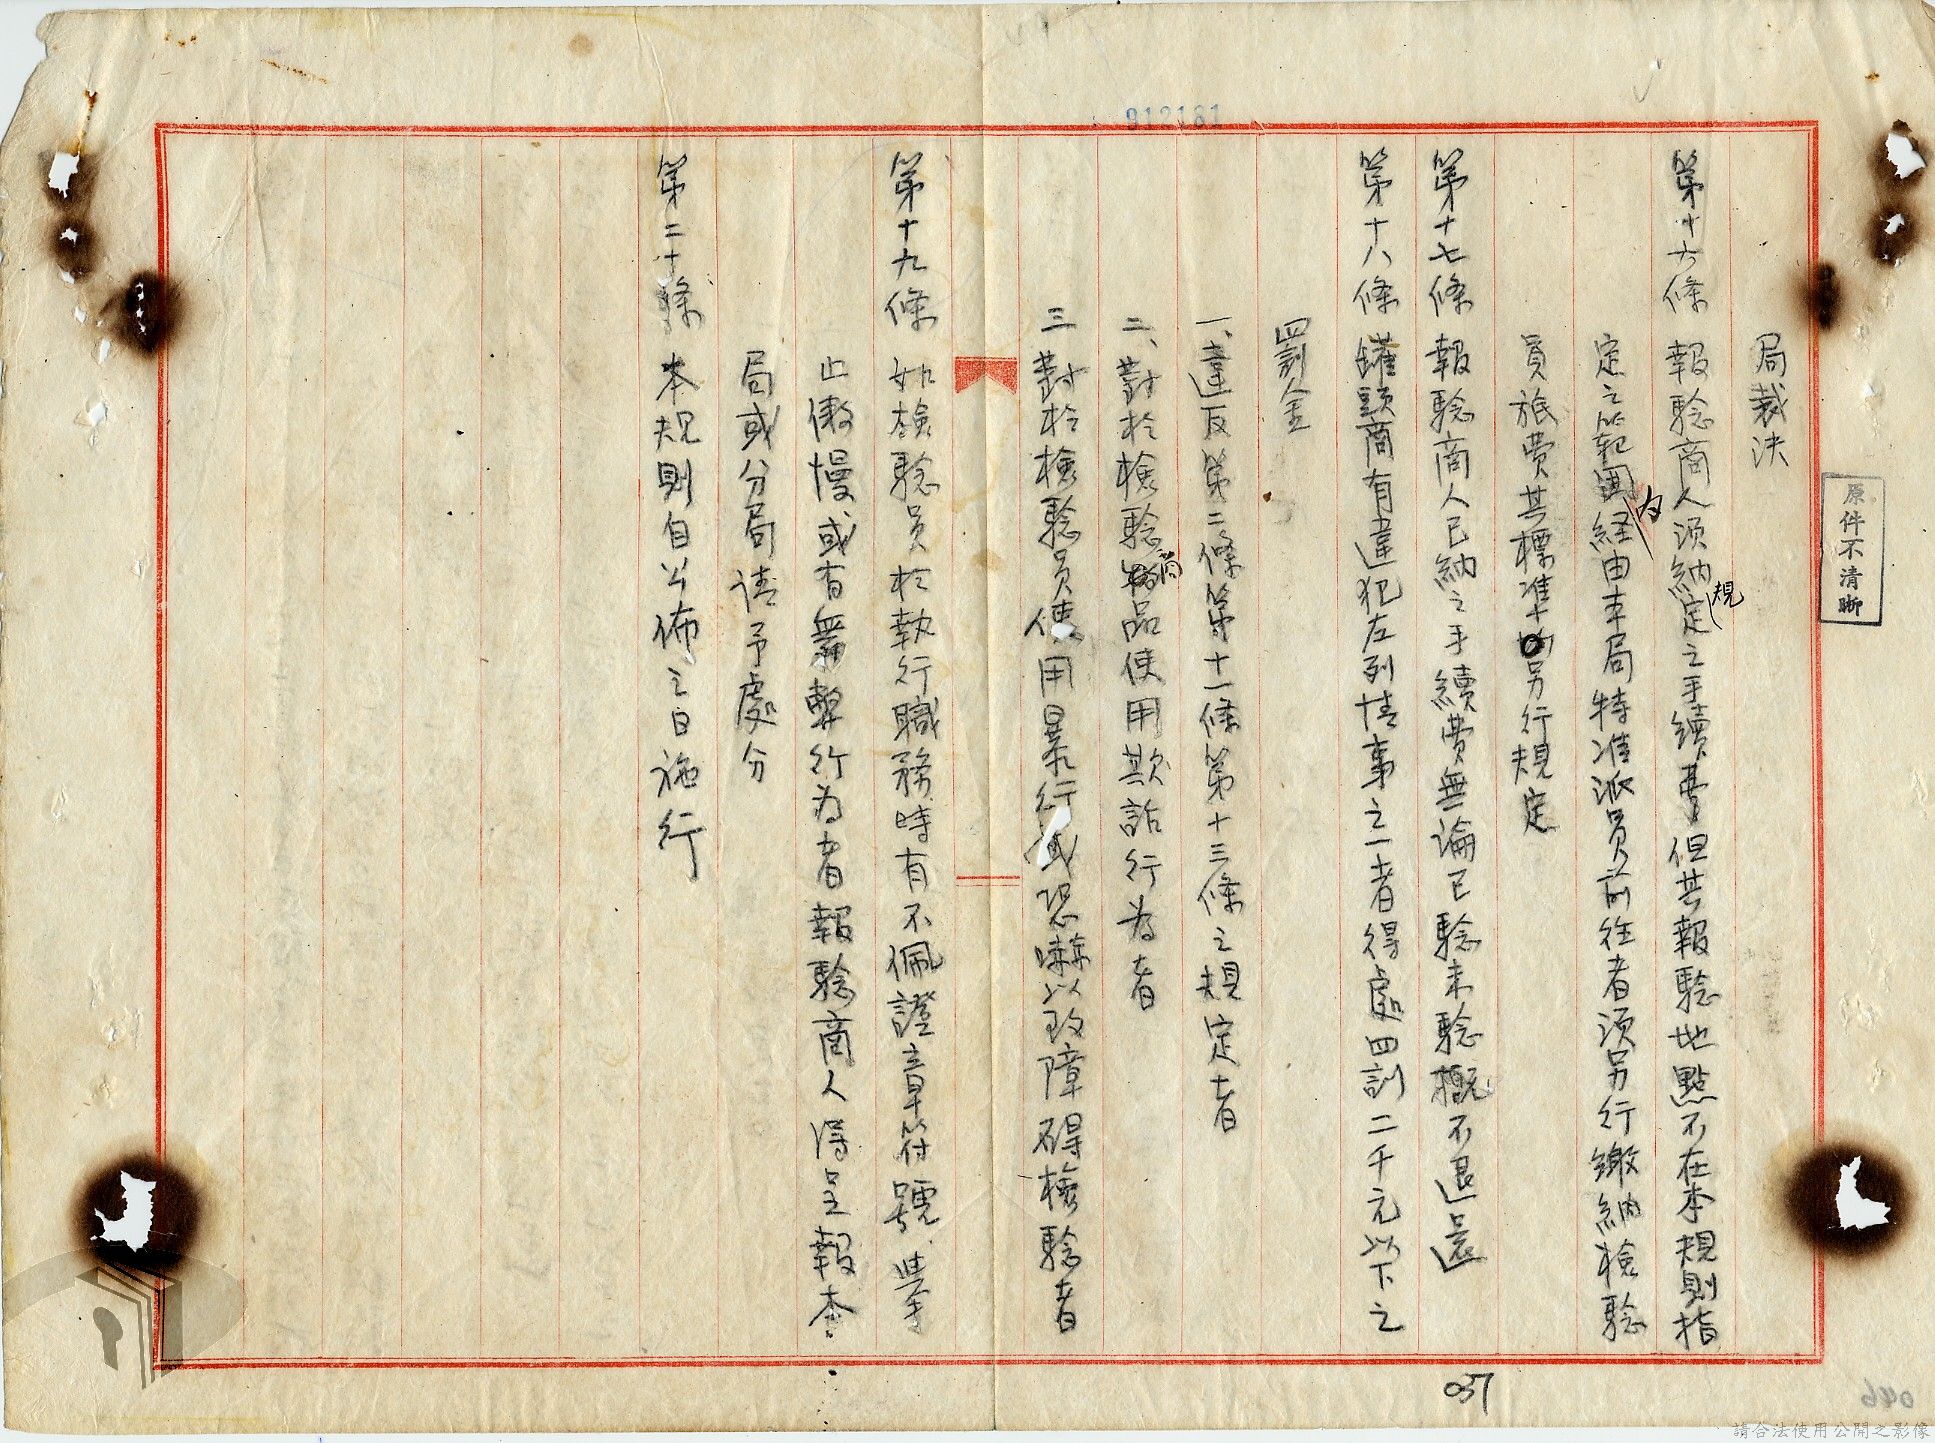 912181
局裁決
第十六條 報驗商人須納規定之手續費但其報驗地點不在本規則指
定之範圍內經由本局特准派員前往者須另行繳納檢驗
員旅費其標準另行規定
第十七條 報驗商人已納之手續費無論已驗未驗概不退還
第十八條 罐頭商有違犯左列情事之一者得處罰二千元以下之
罰金
一、違反第二條第十一條第十三條之規定者
二、對於檢驗筒品使用欺詐行為者
三 對於檢驗員使用暴行或恐嚇以致障碍檢驗者
第十九條 如檢驗員於執行職務時有不佩證章符號、舉
止傲慢或有舞弊行為者報驗商人得呈報本
局或分局請予處分
第二十條 本規則自公佈之日施行
原件不清晰
037
046
請合法使用公開之影像